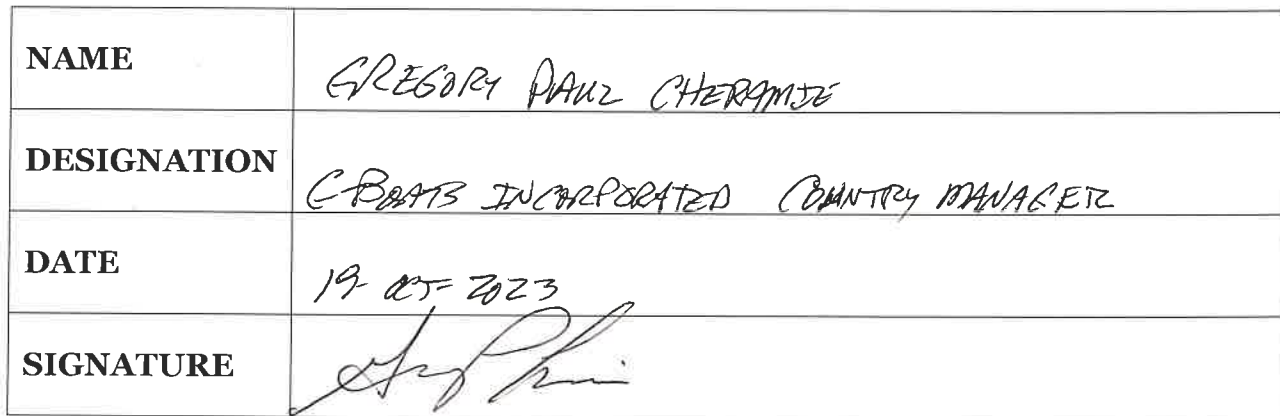 NAME GREGORY PAUL CHERAMIE
DESIGNATION C-BOATS INCORPORATED COUNTRY MANAGER
DATE 19-OCT-2023
SIGNATURE